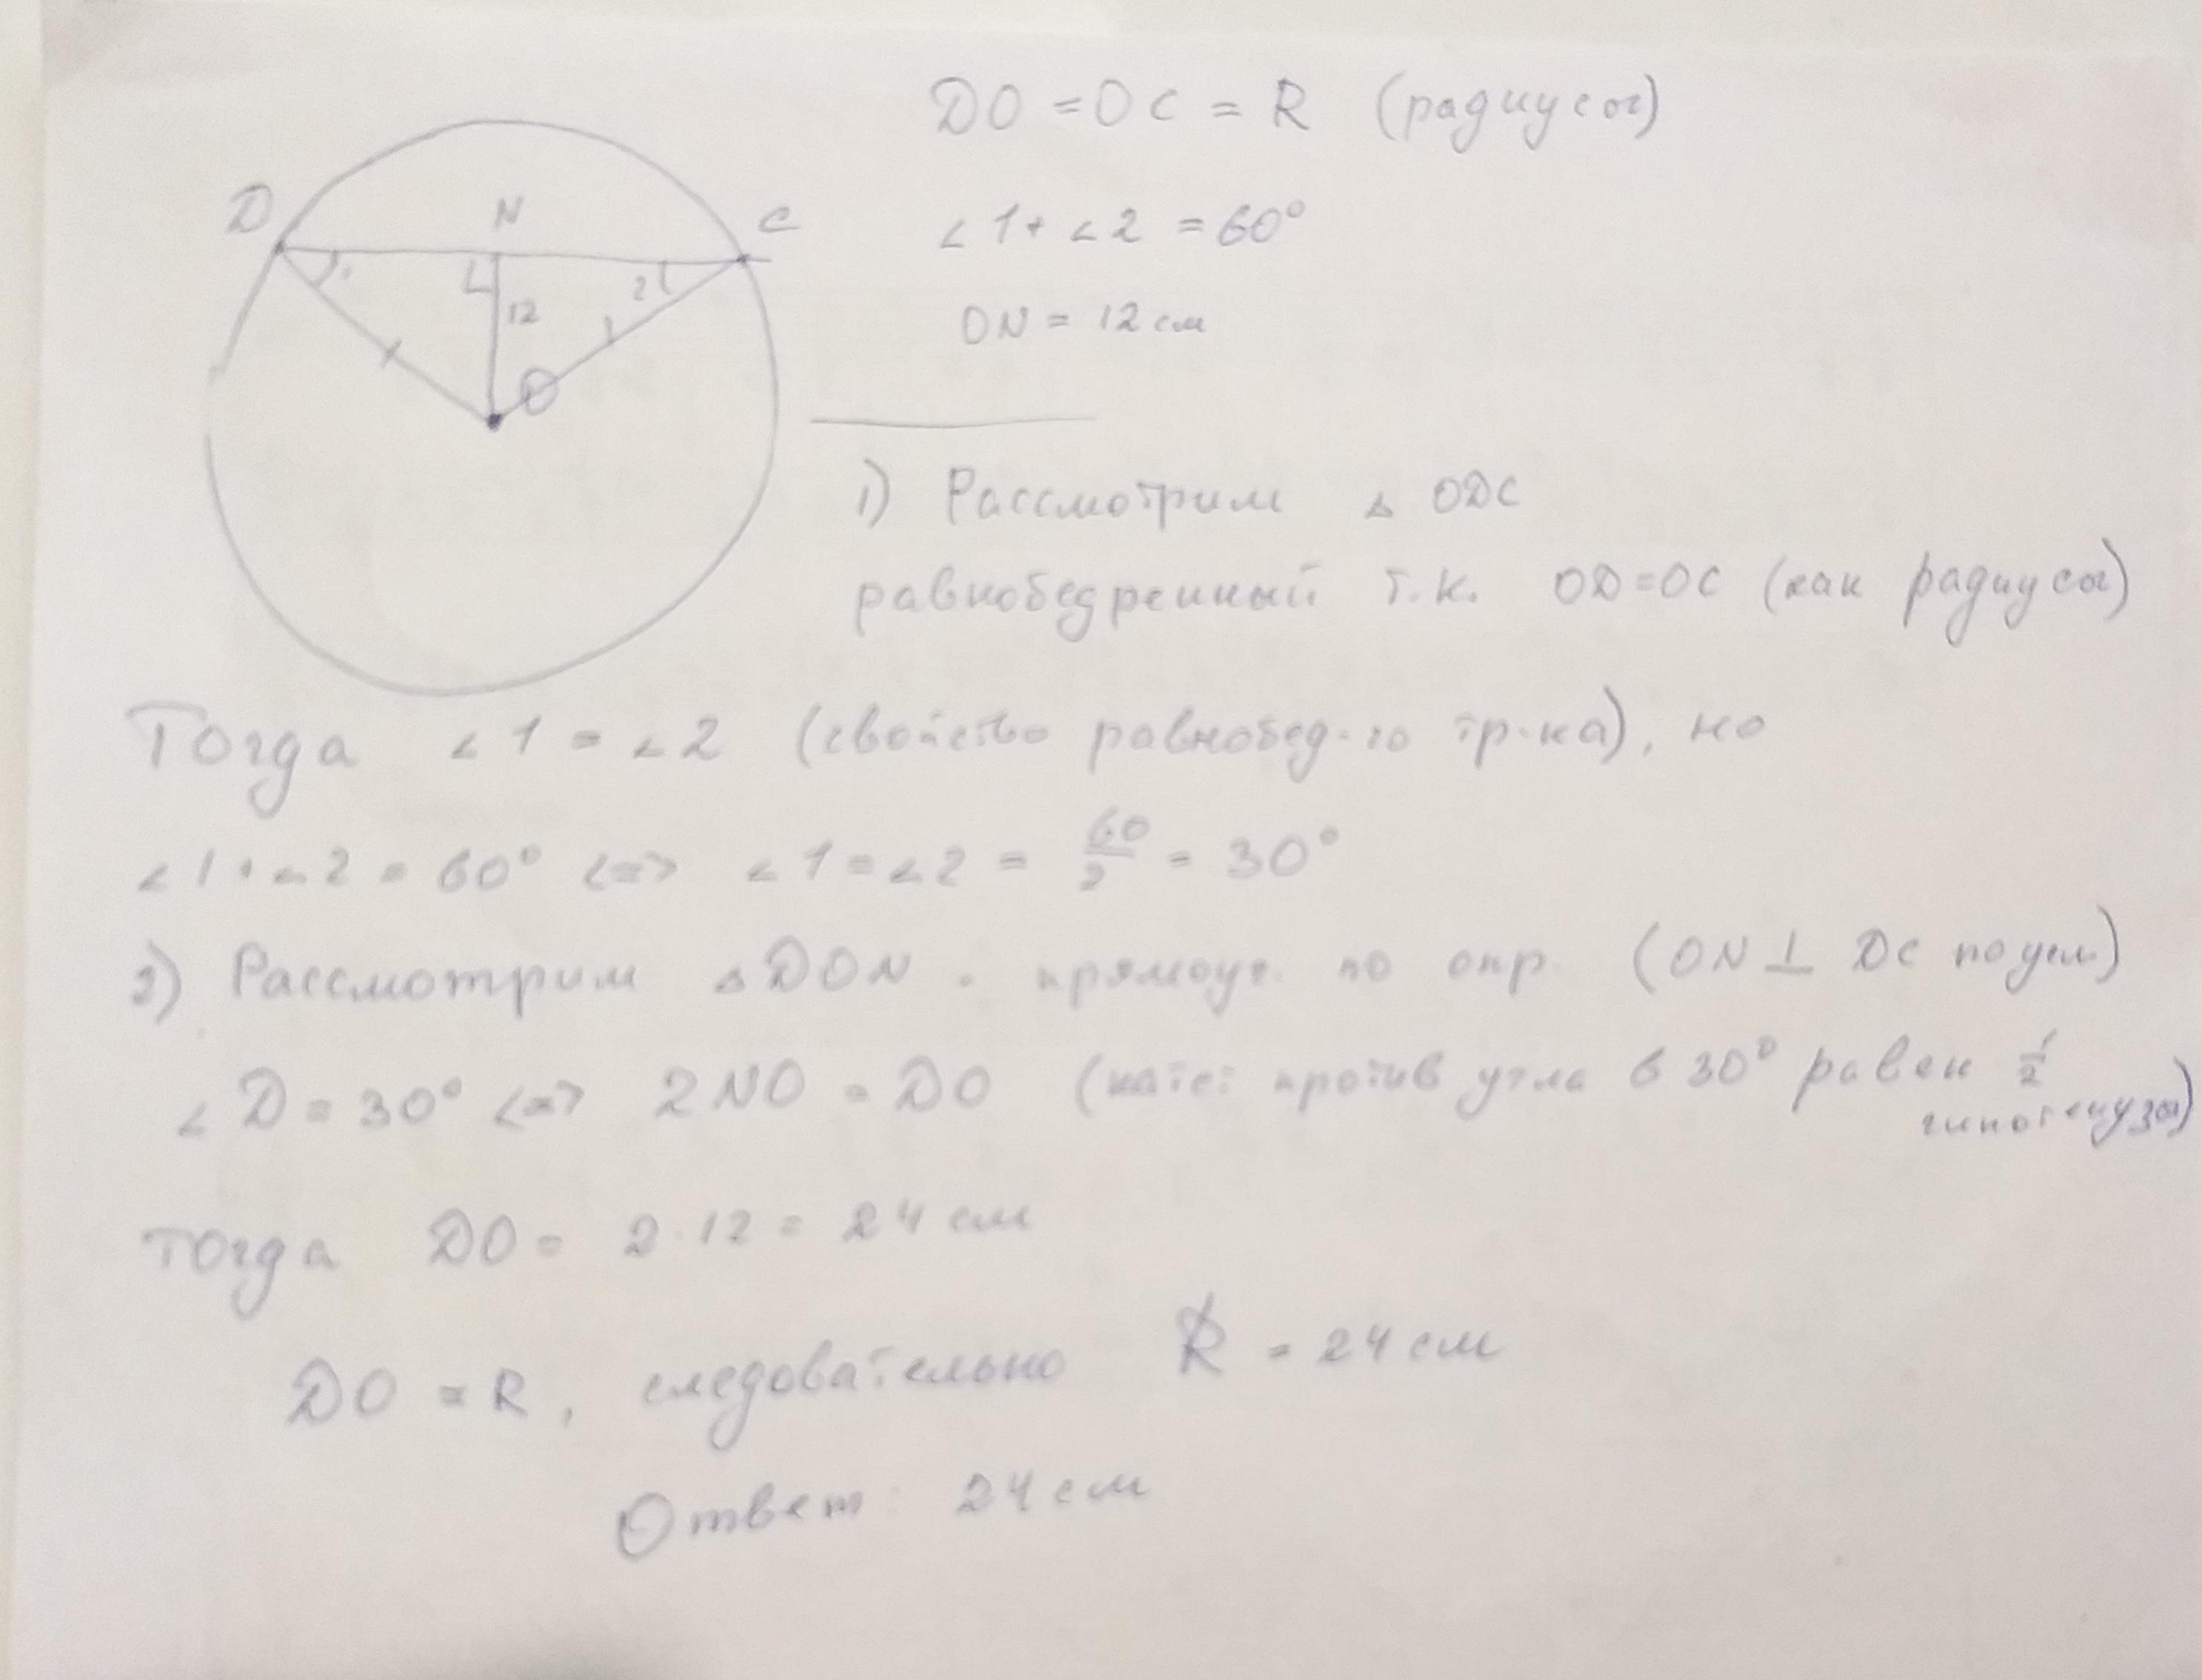 D N C
12 2
O
DO = OC = R (радиусы)
∠1 + ∠2 = 60°
ON = 12 см
1) Рассмотрим △ ODC
равнобедренный т.к. OD=OC (как радиусы)
Тогда ∠1 = ∠2 (свойство равнобед-го тр-ка), но
∠1 + ∠2 = 60° <=> ∠1 = ∠2 = 60/2 = 30°
2) Рассмотрим △DON - прямоуг. по опр. (ON ⊥ DC по усл.)
∠D = 30° <=> 2NO = DO (катет против угла в 30° равен 1/2
гипотенузы)
Тогда DO = 2·12 = 24 см
DO = R, следовательно R = 24 см
Ответ: 24 см